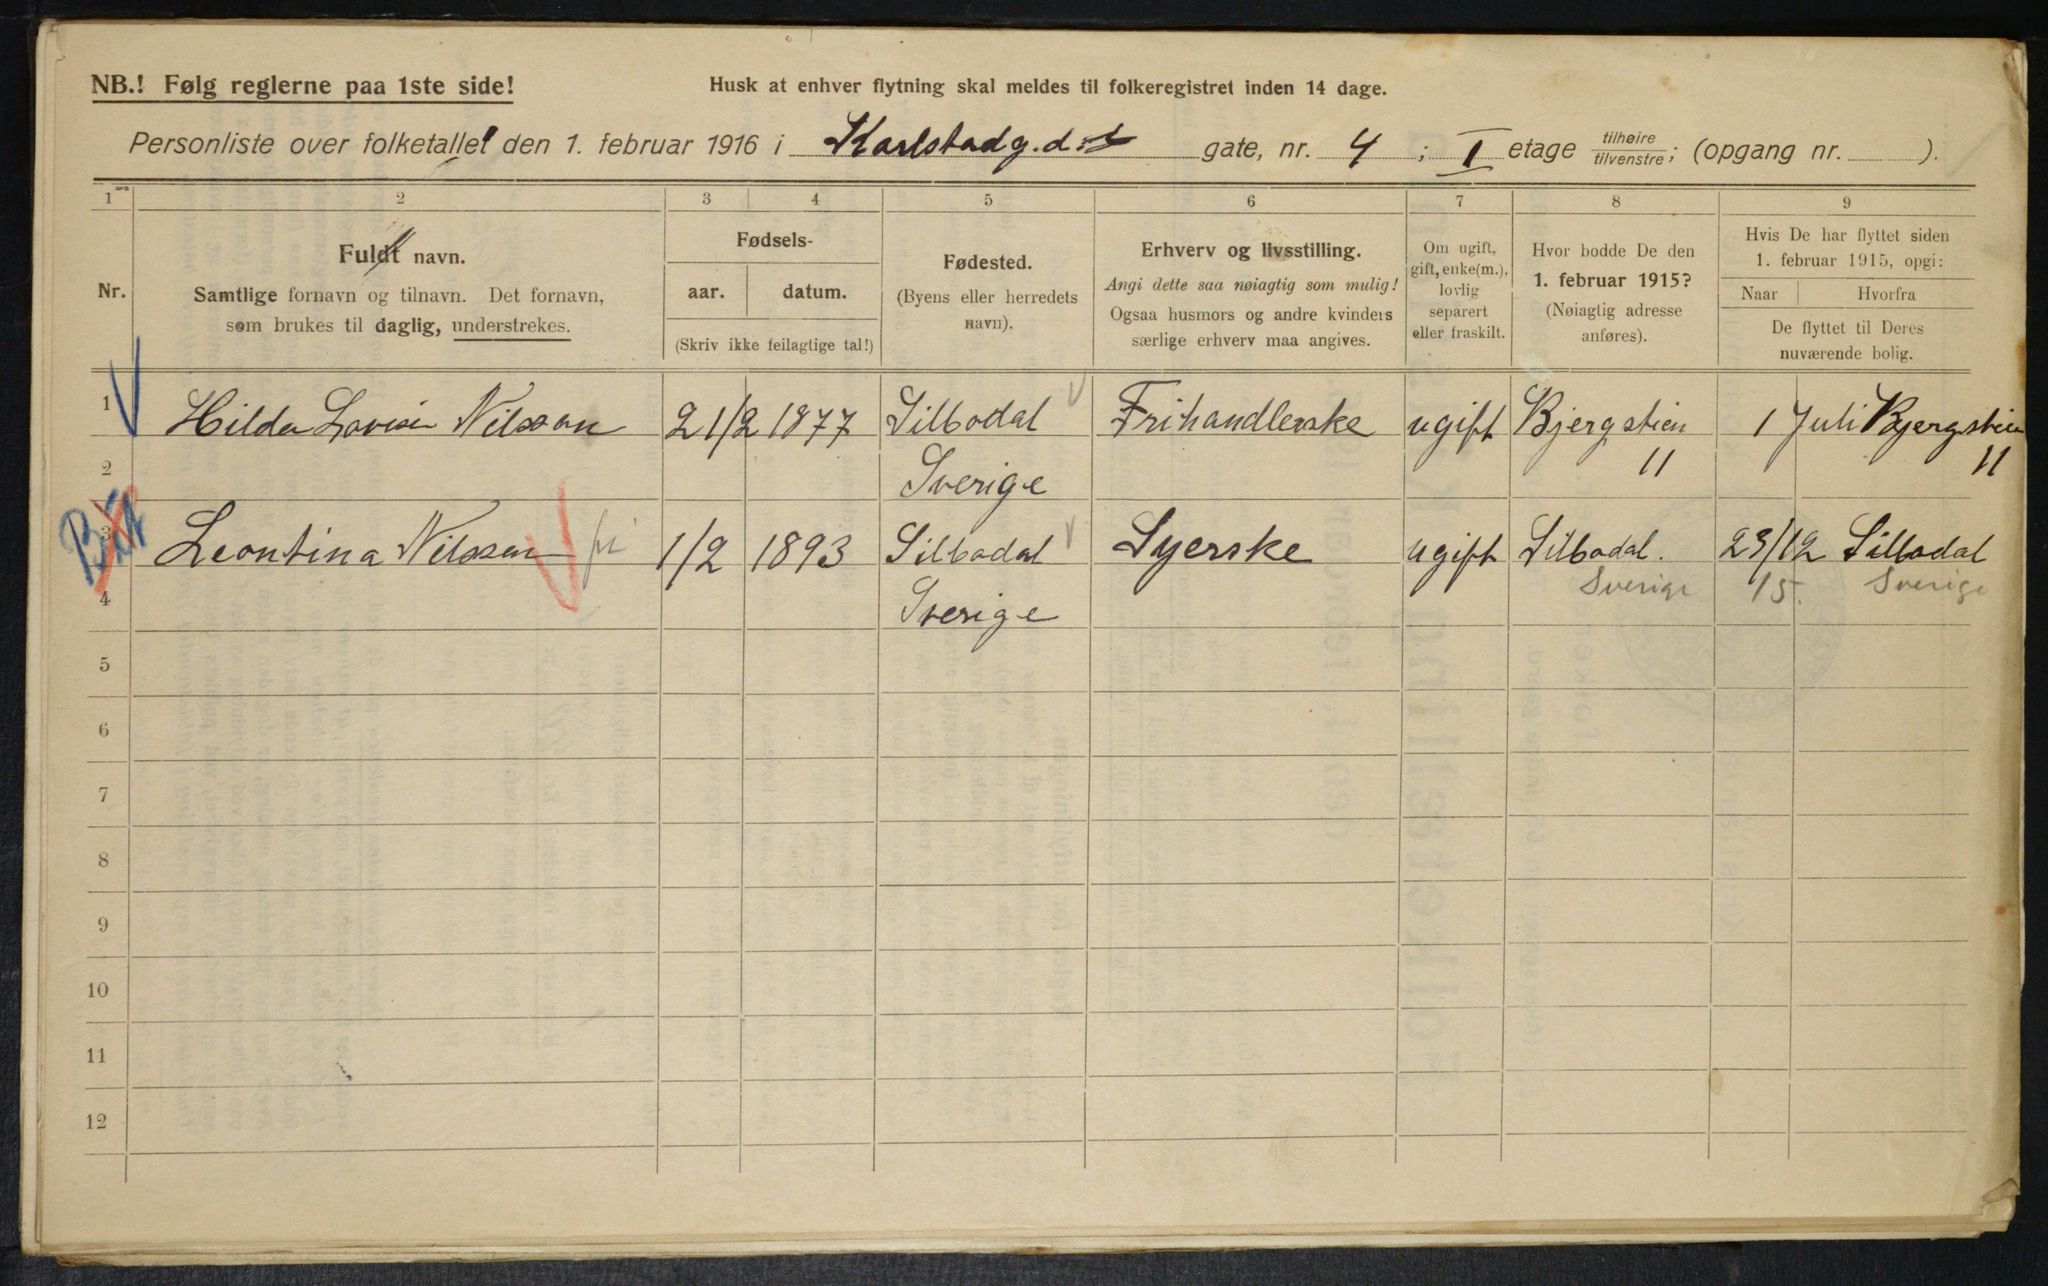 NB.! Følg reglerne paa 1ste side!
Husk at enhver flytning skal meldes til folkeregistret inden 14 dage.
Personliste over folketallet den 1. februar 1916 i Karlstadg. gate, nr. 4 ; I etage tilhøire/tilvenstre; (opgang nr. ).
1 2 3 4 5 6 7 8 9
Nr.
Fuldt navn.
Samtlige fornavn og tilnavn. Det fornavn,
som brukes til daglig, understrekes.
Fødsels-
aar. datum.
(Skriv ikke feilagtige tal!)
Fødested.
(Byens eller herredets
navn).
Erhverv og livsstilling.
Angi dette saa nøiagtig som mulig!
Ogsaa husmors og andre kvinders
særlige erhverv maa angives.
Om ugift,
gift, enke(m.),
lovlig
separert
eller fraskilt.
Hvor bodde De den
1. februar 1915?
(Nøiagtig adresse
anføres).
Hvis De har flyttet siden
1. februar 1915, opgi:
Naar Hvorfra
De flyttet til Deres
nuværende bolig.
1 Hilda Lovise Nilsson 21/2 1877 Silbodal Frihandlerske ugift Bjergstien 1 Juli Bjergstien
2 Sverige 11 11
3 Leontina Nilsson 1/2 1893 Silbodal Syerske ugift Silbodal. 23/12 Silbodal
4 Sverige Sverige 15. Sverige
5
6
7
8
9
10
11
12